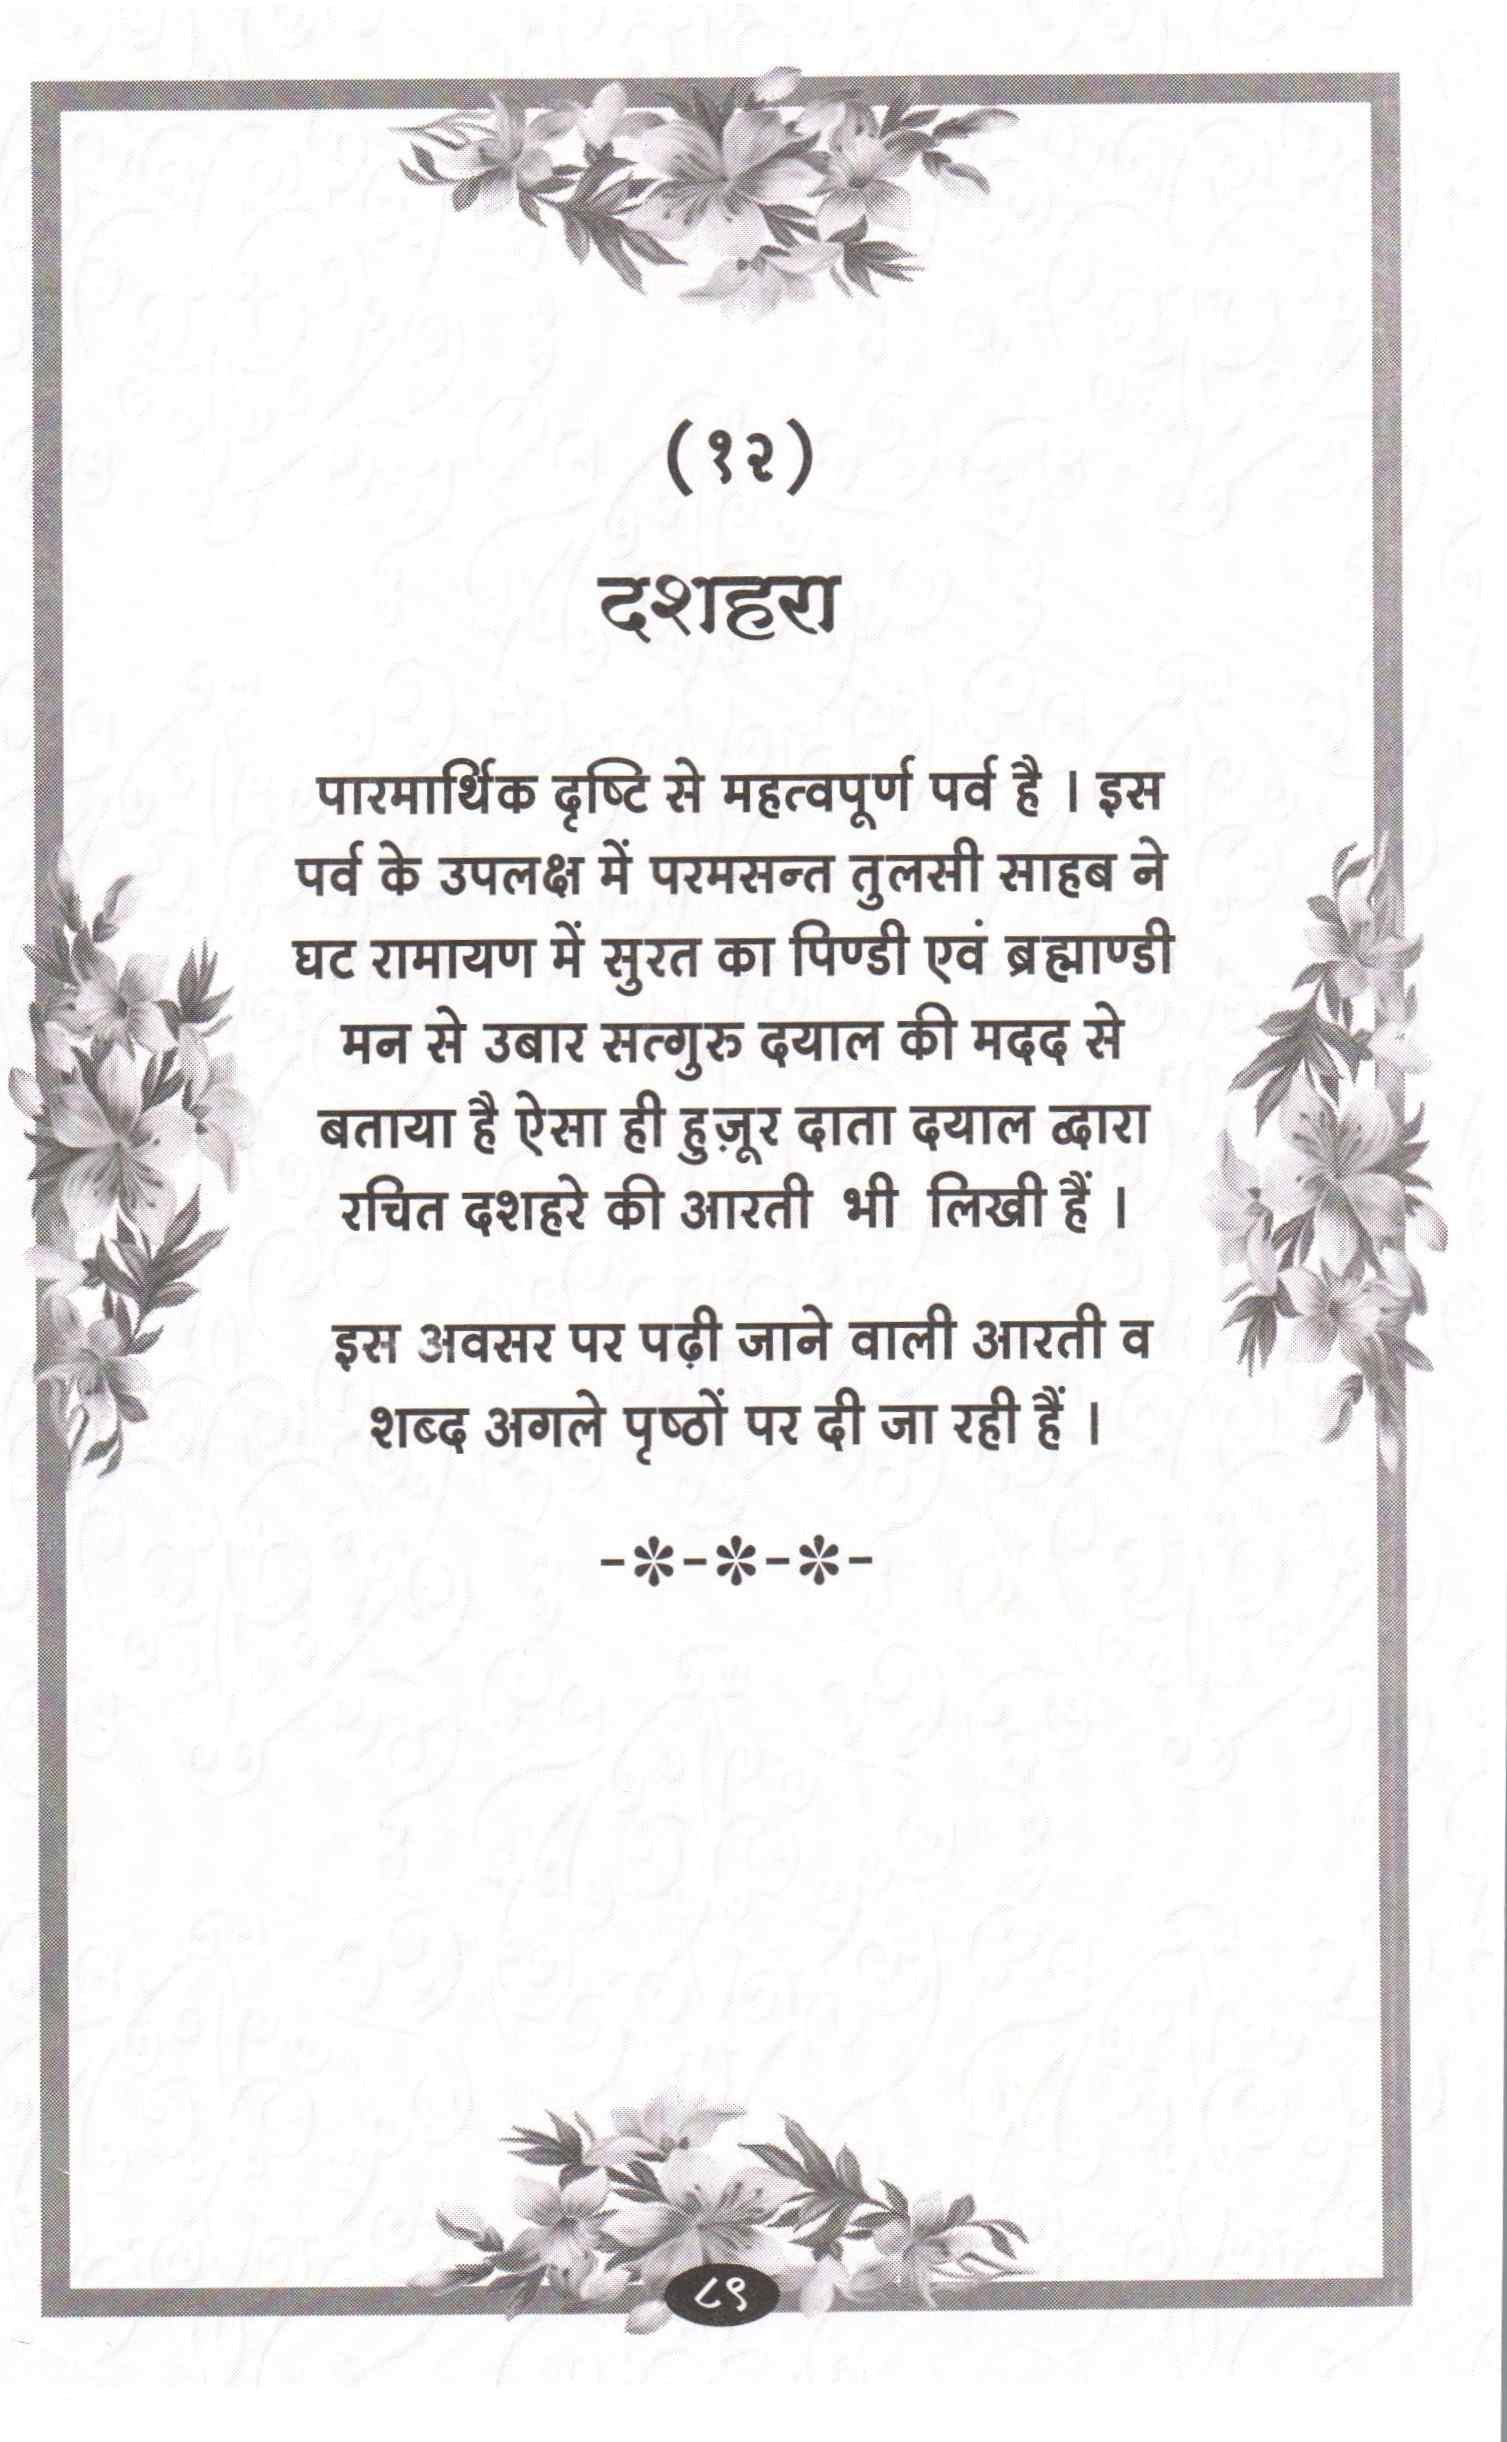 (१२)
दशहरा
पारमार्थिक दृष्टि से महत्वपूर्ण पर्व है । इस
पर्व के उपलक्ष में परमसन्त तुलसी साहब ने
घट रामायण में सुरत का पिण्डी एवं ब्रह्माण्डी
मन से उबार सत्गुरु दयाल की मदद से
बताया है ऐसा ही हुज़ूर दाता दयाल द्वारा
रचित दशहरे की आरती भी लिखी हैं ।
इस अवसर पर पढ़ी जाने वाली आरती व
शब्द अगले पृष्ठों पर दी जा रही हैं ।
-*-*-*-
८९